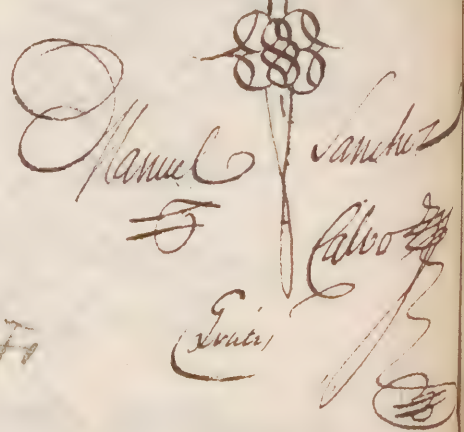 Manuel Sanchez
Calvo
Gratis